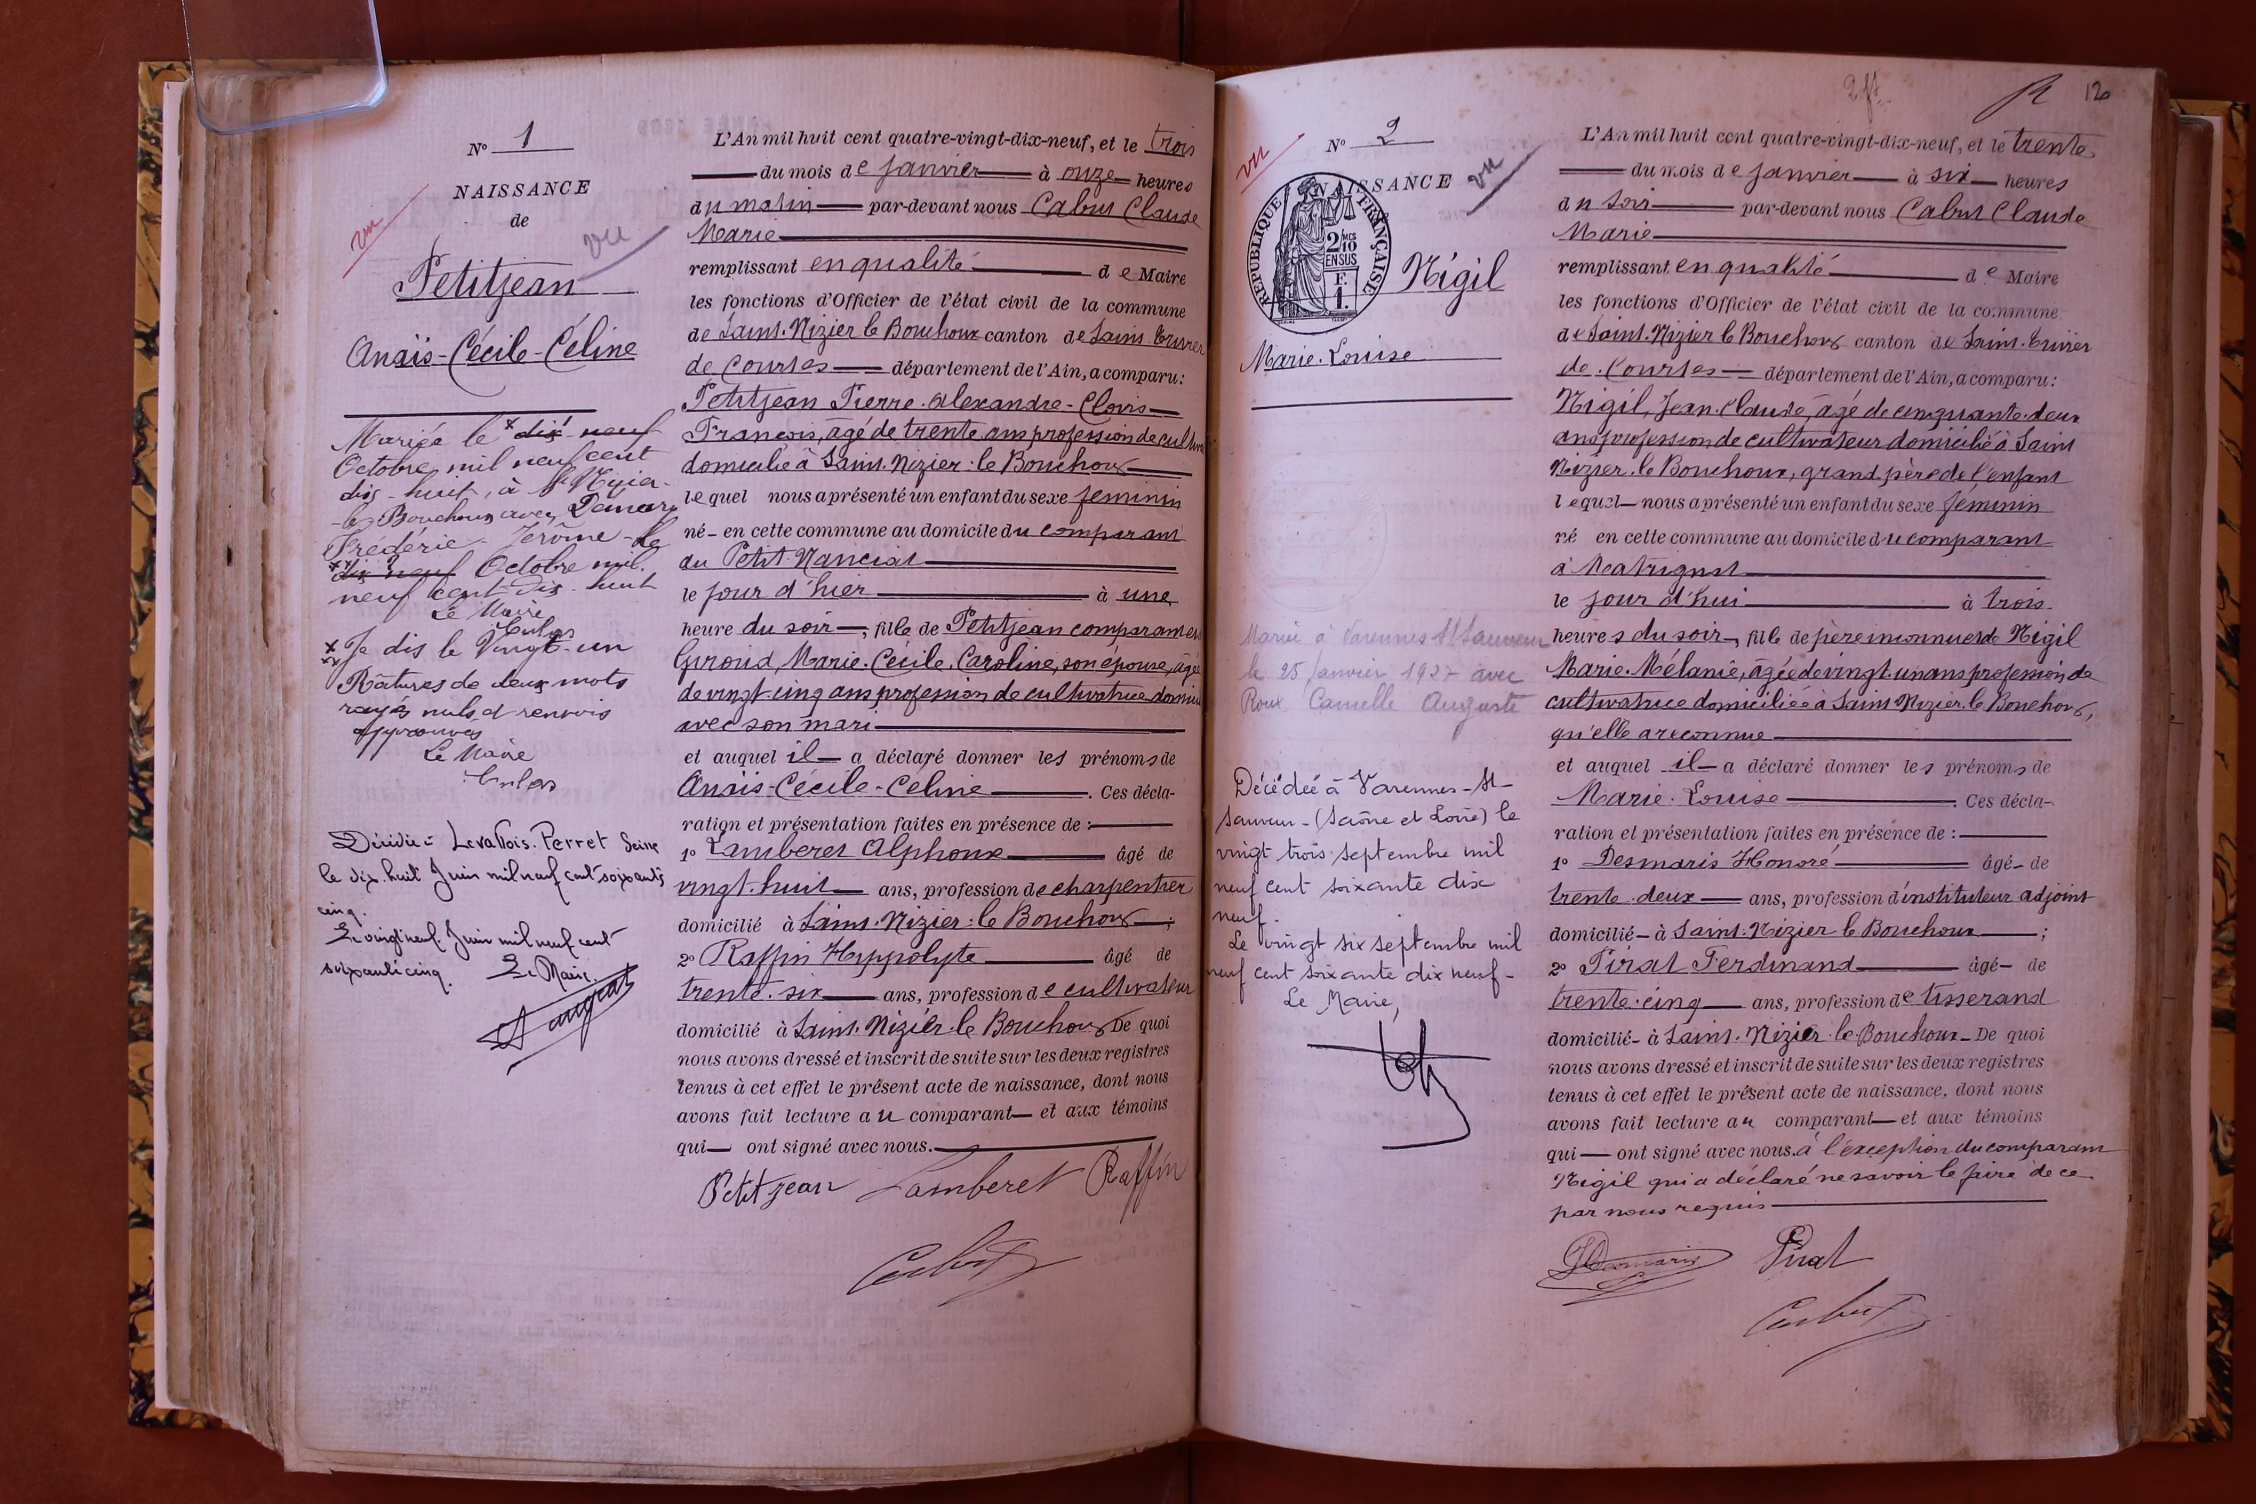 N° 1
NAISSANCE
de
vu
vu
Petitjean
Anaïs-Cécile-Céline
Mariée le x dix-neuf
Octobre mil neuf cent
dix-huit, à St Nizier-
-le-Bouchoux avec
Frédéric-Jérôme-le
xx dix neuf Octobre mil
neuf cent dix-huit
Le Maire
x Je dis le Vingt-un
xx
Râtures de deux mots
rayés nuls et renvois
approuvés
Le Maire
Décédée à Levallois-Perret Seine
le dix-huit Juin mil neuf cent soixante
cinq.
Le vingt neuf Juin mil neuf cent
soixante cinq. Le Maire.
L'An mil huit cent quatre-vingt-dix-neuf, et le trois
du mois de janvier à onze heures
du matin par-devant nous Cabut Claude
Marie
remplissant en qualité de Maire
les fonctions d'Officier de l'état civil de la commune
de Saint-Nizier le Bouchoux canton de Saint Trivier
de Courtes département de l'Ain, a comparu:
Petitjean Pierre-Alexandre-Clovis
François, âgé de trente ans profession de cultiv
domicilié à Saint-Nizier-le Bouchoux
lequel nous a présenté un enfant du sexe féminin
né en cette commune au domicile du comparant
au Petit Nanciat
le jour d'hier à une
heure du soir, fille de Petitjean comparant et
Giroud, Marie-Cécile-Caroline, son épouse, âgée
de vingt-cinq ans profession de cultivatrice domici
avec son mari
et auquel il a déclaré donner les prénoms de
Anaïs-Cécile-Céline. Ces décla-
ration et présentation faites en présence de :
1° Lamberet Alphonse âgé de
vingt-huit ans, profession de charpentier
domicilié à Saint-Nizier-le Bouchoux ;
2° Raffin Hyppolyte âgé de
trente-six ans, profession de cultivateur
domicilié à Saint-Nizier-le Bouchoux De quoi
nous avons dressé et inscrit de suite sur les deux registres
tenus à cet effet le présent acte de naissance, dont nous
avons fait lecture au comparant et aux témoins
qui ont signé avec nous.
Petitjean Lamberet Raffin
Cabut
12
N° 2
NAISSANCE
vu
vu
REPUBLIQUE FRANÇAISE
2/10
EN SUS
F.
1.
Nigil
Marie-Louise
Mariée à Varennes St Sauveur
le 25 Janvier 1927 avec
Roux Camille Auguste
Décédée à Varennes-St-
Sauveur-(Saône et Loire) le
vingt trois septembre mil
neuf cent soixante dix
neuf.
Le vingt six septembre mil
neuf cent soixante dix neuf-
Le Maire,
L'An mil huit cent quatre-vingt-dix-neuf, et le trente
du mois de janvier à six heures
du soir par-devant nous Cabut Claude
Marie
remplissant en qualité de Maire
les fonctions d'Officier de l'état civil de la commune
de Saint-Nizier le Bouchoux canton de Saint-Trivier
de Courtes département de l'Ain, a comparu:
Nigil, Jean-Claude, âgé de cinquante-deux
ans profession de cultivateur domicilié à Saint
Nizier-le Bouchoux, grand père de l'enfant
lequel nous a présenté un enfant du sexe féminin
né en cette commune au domicile du comparant
à
le jour d'hui à trois
heures du soir, fille de père inconnu et de Nigil
Marie-Mélanie, âgée de vingt-un ans profession de
cultivatrice domiciliée à Saint Nizier-le Bouchoux,
qu'elle a reconnue
et auquel il a déclaré donner les prénoms de
Marie-Louise. Ces décla-
ration et présentation faites en présence de :
1° Desmaris Honoré âgé de
trente-deux ans, profession d'instituteur adjoint
domicilié à Saint-Nizier le Bouchoux ;
2° Pirat Ferdinand âgé de
trente-cinq ans, profession de tisserand
domicilié à Saint-Nizier-le-Bouchoux De quoi
nous avons dressé et inscrit de suite sur les deux registres
tenus à cet effet le présent acte de naissance, dont nous
avons fait lecture au comparant et aux témoins
qui ont signé avec nous. à l'exception du comparant
Nigil qui a déclaré ne savoir le faire de ce
par nous requis
HDesmaris Pirat
Cabut